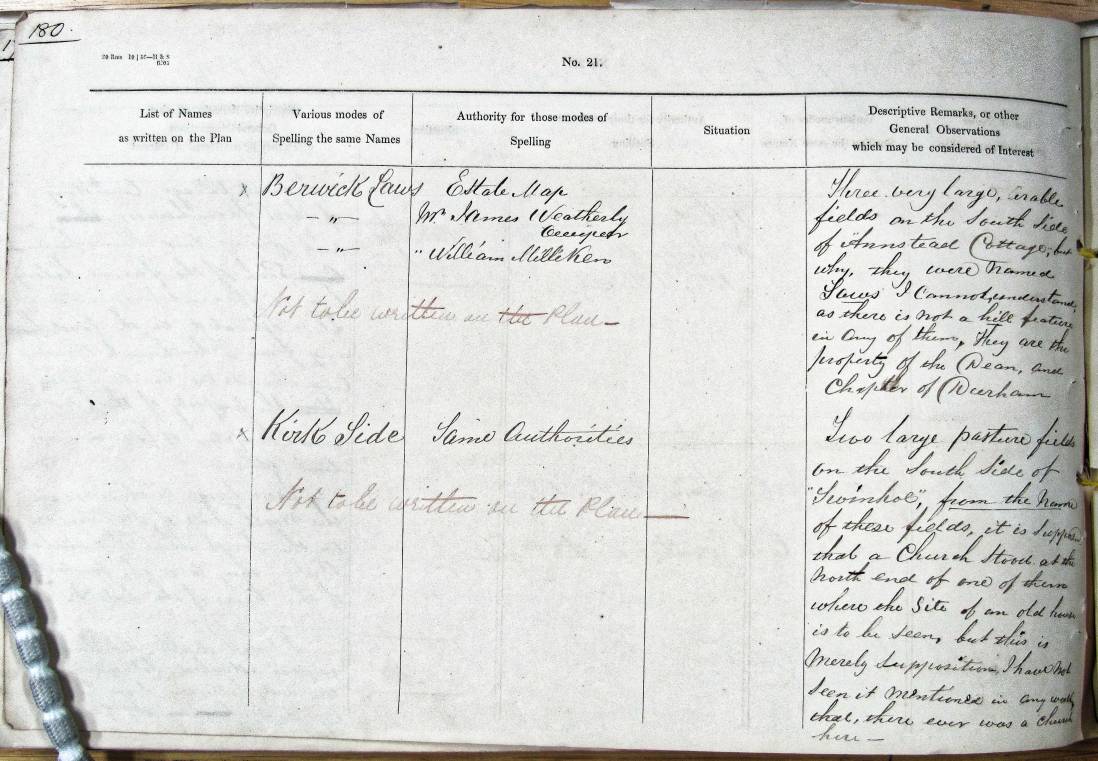 180.
No. 21.
List of Names
as written on the Plan
Various modes of
Spelling the same Names
Authority for those modes of
Spelling
Situation
Descriptive Remarks, or other
General Observations
which may be considered of Interest
x Berwick Laws
Estate Map
—"—
Mr James Weatherly
Occupier
—"—
" William Milliken
Not to be written on the Plan—
Three very large, arable
fields on the South Side
of "Annstead Cottage", but
why, they were named
Laws I cannot understand,
as there is not a hill feature
in any of them, They are the
property of the Dean, and
Chapter of Durham
x Kirk Side
Same Authorities
Not to be written on the Plan—
Two large pasture fields
on the South Side of
"Swinhoe", from the Name
of these fields, it is supposed
that a Church stood at the
North end of one of them
where the Site of an old house
is to be seen, but this is
merely supposition, I have not
seen it mentioned in any work
that, there ever was a Church
here—